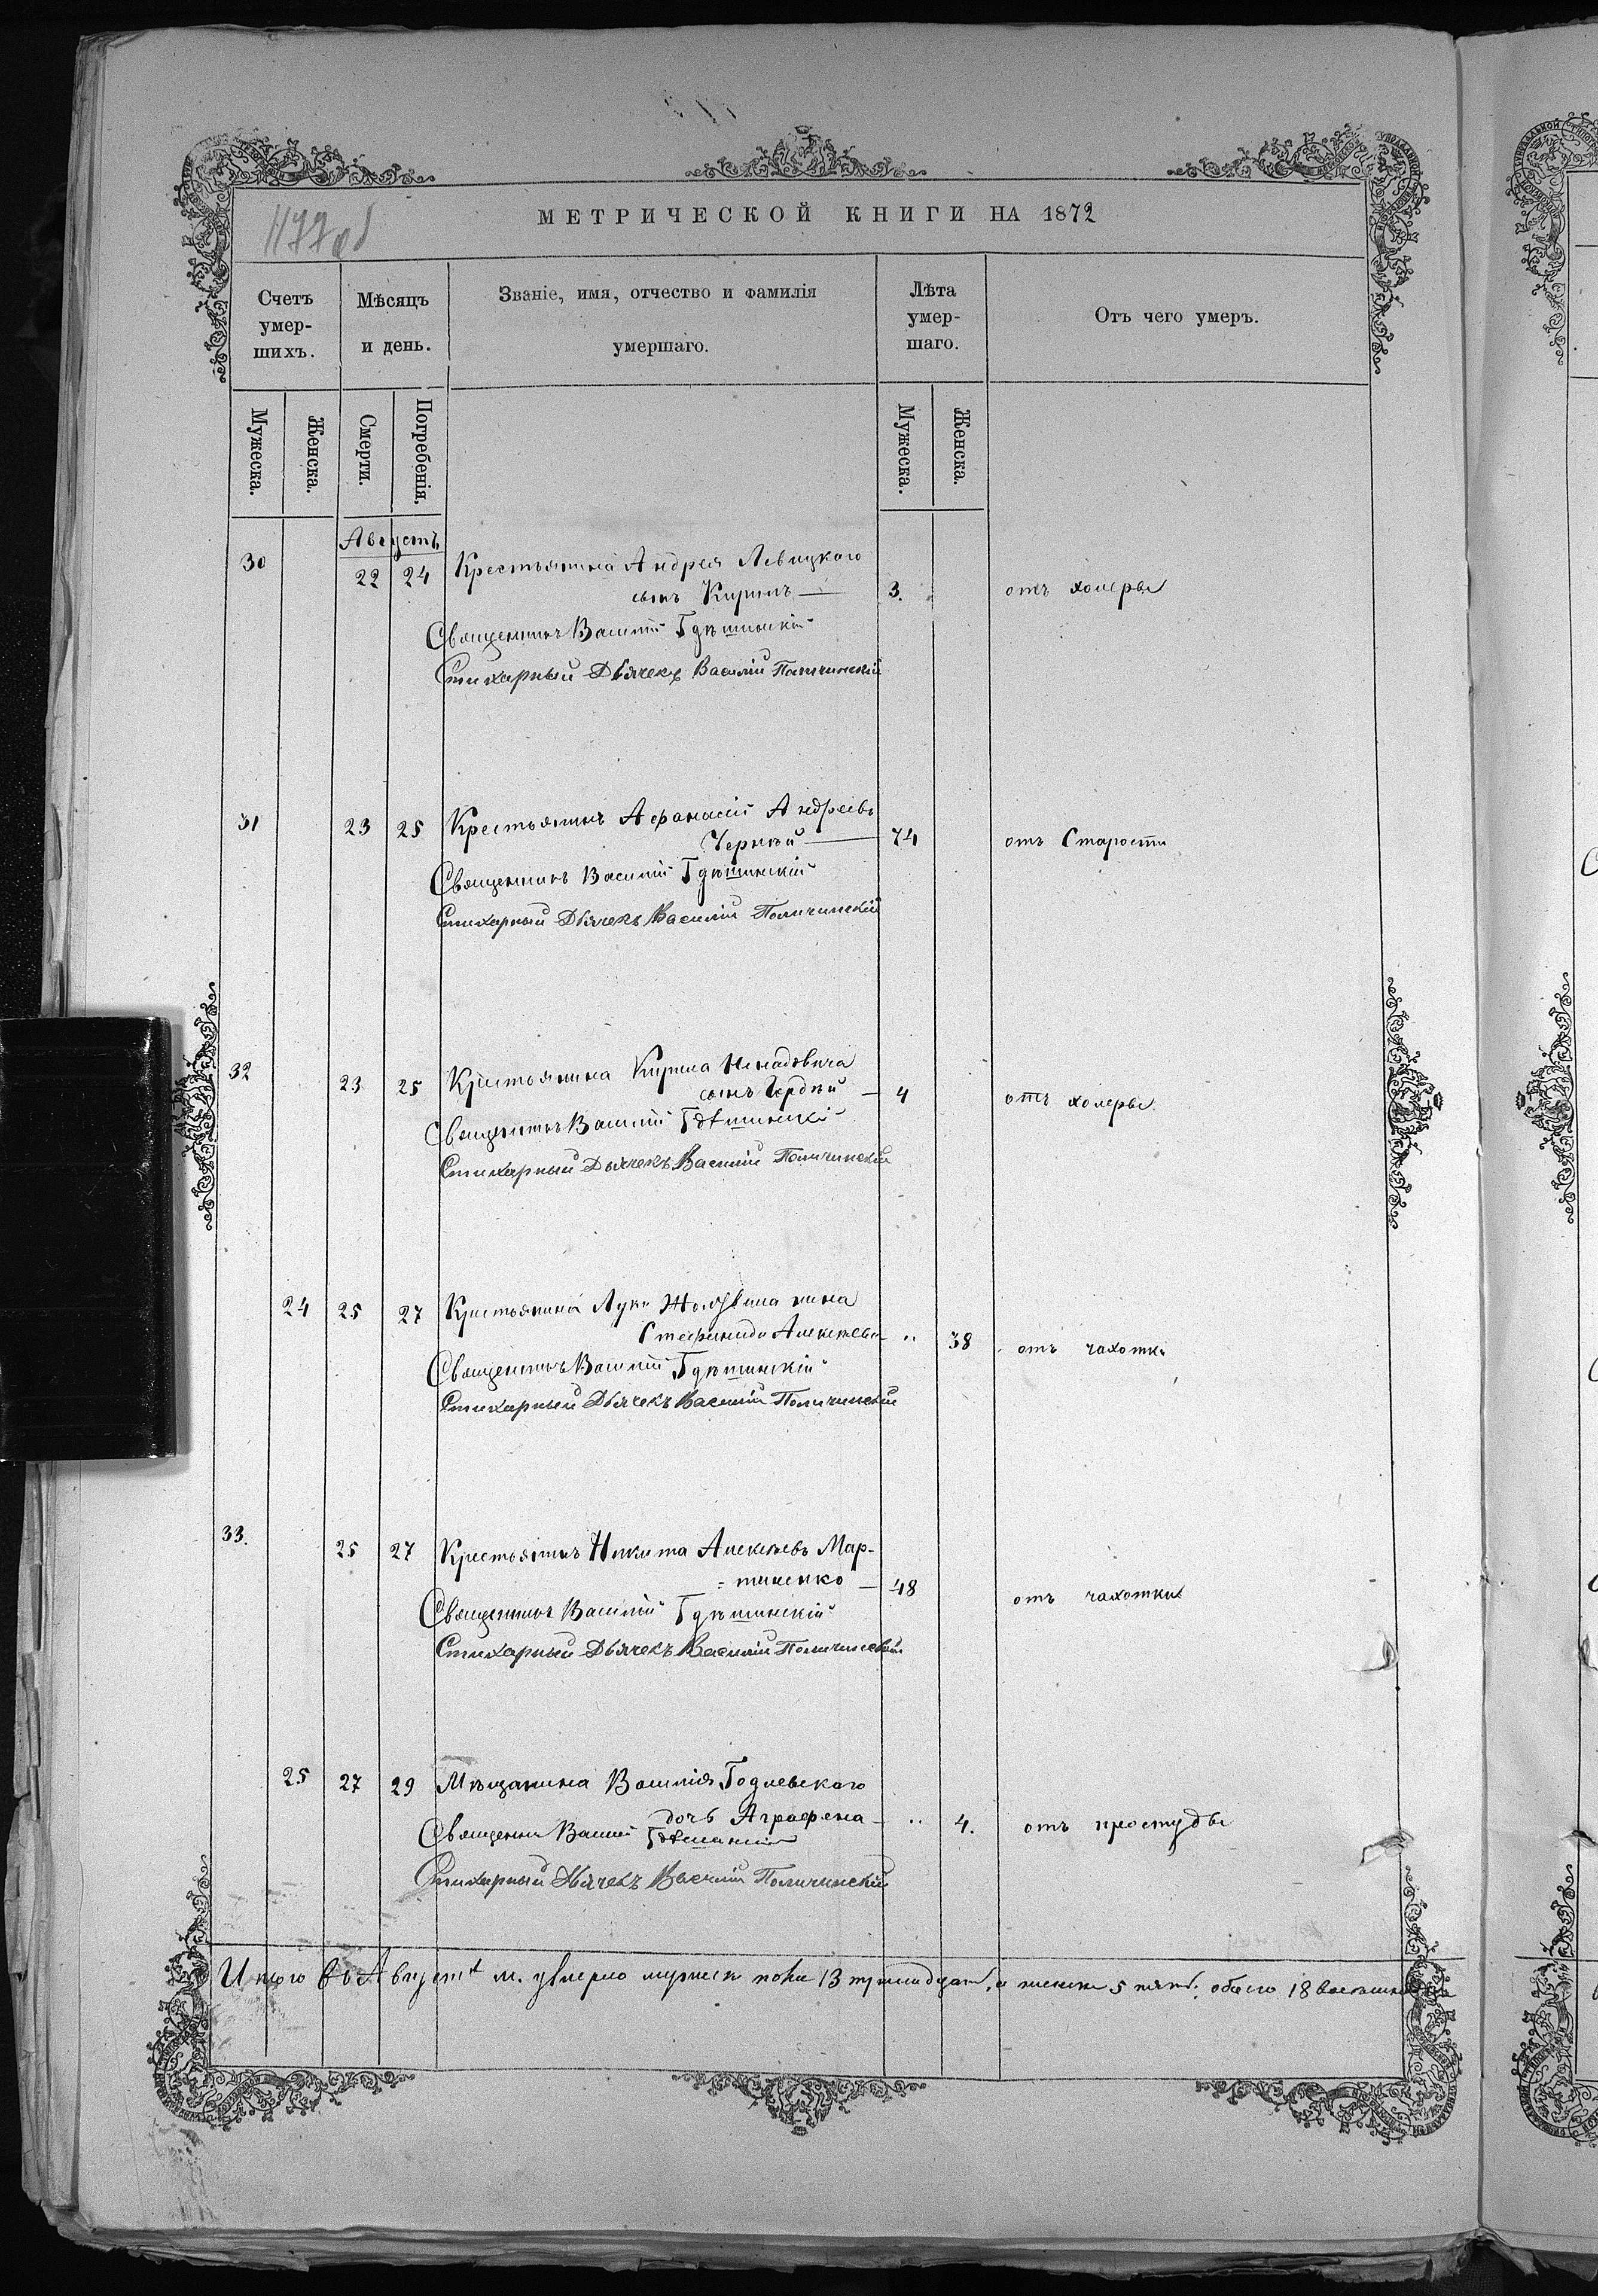 МЕТРИЧЕСКОЙ КНИГИ НА 1872
1177 об
Счетъ умер-шихъ.
Мѣсяцъ и день.
Званіе, имя, отчество и фамилія умершаго.
Лѣта умер-шаго.
Отъ чего умеръ.
Мужеска.
Женска.
Смерти.
Погребенія.
Мужеска.
Женска.
Августъ
30 22 24 Крестьянина Андрея Левицкаго
сынъ Кирилъ — 3. отъ холеры
Священникъ Василій Гдѣшинскій
Стихарный Дьячекъ Василій Поличинскій
31 23 25 Крестьянинъ Афанасій Андреевъ
Черный — 74 отъ Старости
Священникъ Василій Гдѣшинскій
Стихарный Дьячекъ Василій Поличинскій
32 23 25 Крестьянина Кирила
сынъ — 4 отъ холеры.
Священникъ Василій Гдѣшинскій
Стихарный Дьячекъ Василій Поличинскій
24 25 27 Крестьянина Луки жена
Стефанида Алексѣева — „ 38 отъ чахотки
Священникъ Василій Гдѣшинскій
Стихарный Дьячекъ Василій Поличинскій
33. 25 27 Крестьянинъ Никита Алексѣевъ Мар-
=тиненко — 48 отъ чахотки
Священникъ Василій Гдѣшинскій
Стихарный Дьячекъ Василій Поличинскій
25 27 29 Мѣщанина Василія Годлевскаго
дочь Аграфена — „ 4. отъ простуды
Священник Василій Гдѣшинскій
Стихарный Дьячекъ Василій Поличинскій
Итого въ Августѣ м. умерло мужеск пола 13 тринадцат, а женска 5 пять, обоего 18 восемнадцать